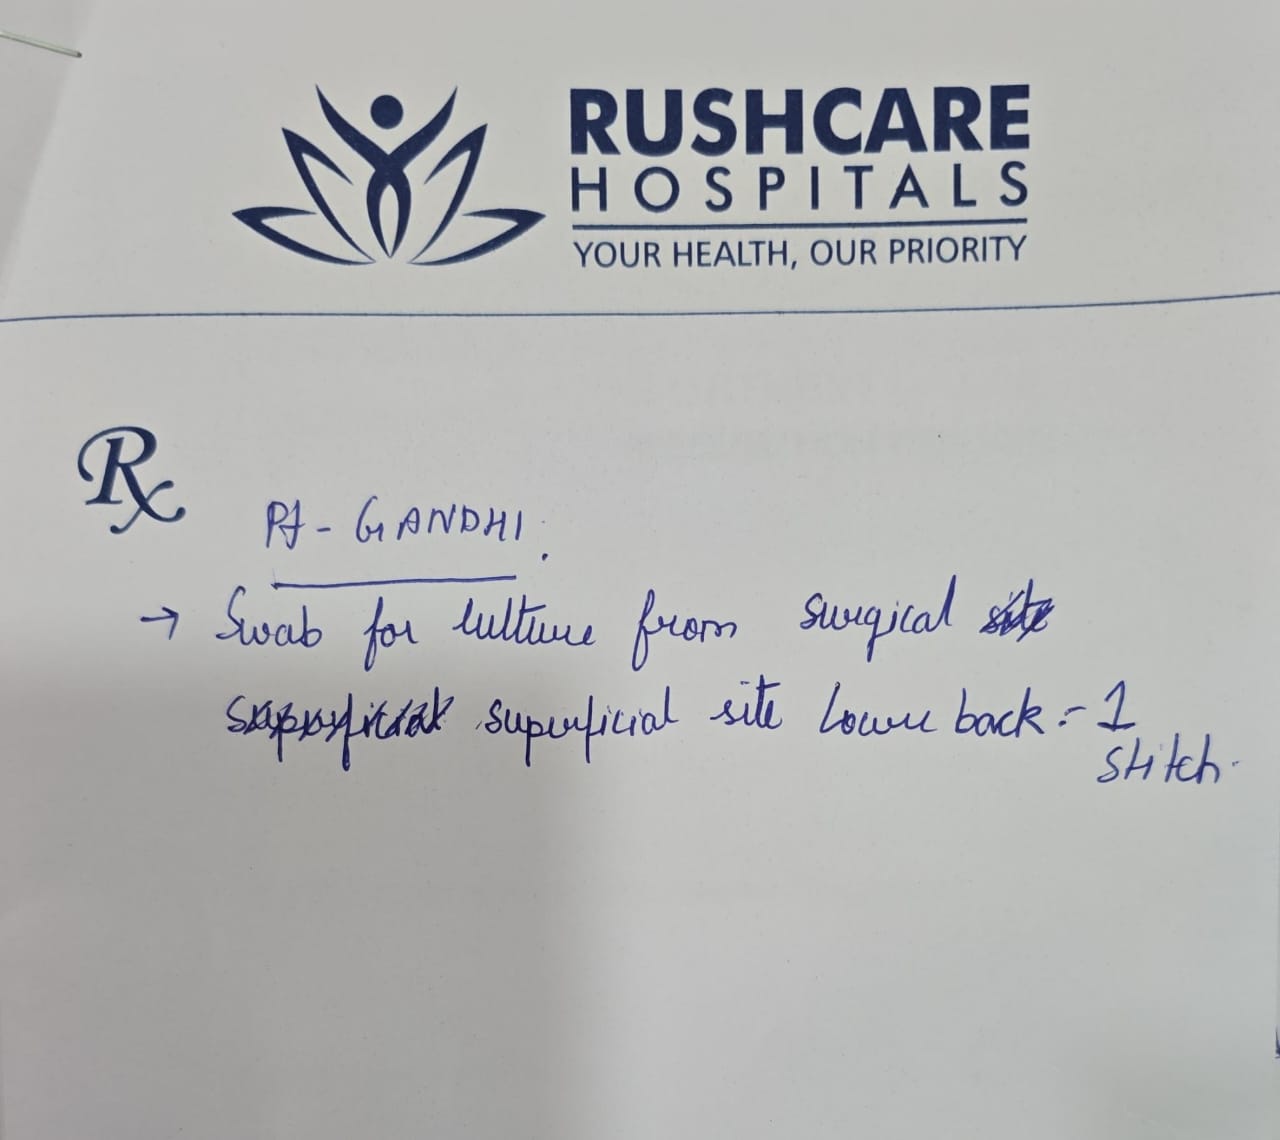 RUSHCARE
HOSPITALS
YOUR HEALTH, OUR PRIORITY
Rx
Pt - GANDHI.
→ Swab for culture from surgical
superficial site Lower back :- 1
stitch.